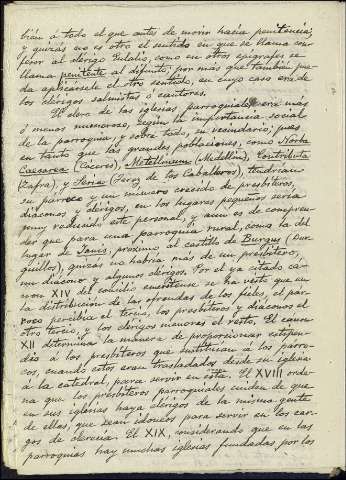 bián á todo el que antes de morir hacía penitencia;
y quizás no es otro el sentido en que se llama con-
fesor al clérigo Eulalio, como en otros epígrafes se
llama penitente al difunto, por más que también pue-
da aplicársele el otro sentido, en cuyo caso era de
los clérigos salmistas ó cantores.
El clero de las iglesias parroquiales era más
ó menos numeroso, según la importancia social
de la parroquia, y sobre todo, su vecindario; pues
en tanto que las grandes poblaciones, como Norba
Caesarea (Cáceres), Metellinum (Medellín), Contributa
(Zafra), y Seria (Jerez de los Caballeros), tendrían
su párroco y un número crecido de presbíteros,
diáconos y clérigos, en los lugares pequeños sería
muy reducido este personal, y aun es de compren-
der que para una parroquia rural, como la del
lugar de próximo al castillo de Burgus (Bur-
guillos), quizás no habría más de un presbítero,
un diácono y algunos clérigos. Por el ya citado ca-
non XIV del concilio emeritense se ha visto que en
la distribución de las ofrendas de los fieles, el pár-
roco percibía el tercio, los presbíteros y diáconos el
otro tercio, y los clérigos menores el resto. El canon
XII determina la manera de proporcionar estipen-
dio á los presbíteros que instituían á los párro-
cos, cuando éstos eran trasladados desde su iglesia
á la catedral, para servir en ésta. El XVIII orde-
na que los presbíteros parroquiales cuiden de que
en sus iglesias haya clérigos de la misma gente
de ellas, que sean idóneos para servir en los car-
gos de clerecía. El XIX, considerando que en las
parroquias hay muchas iglesias fundadas por los